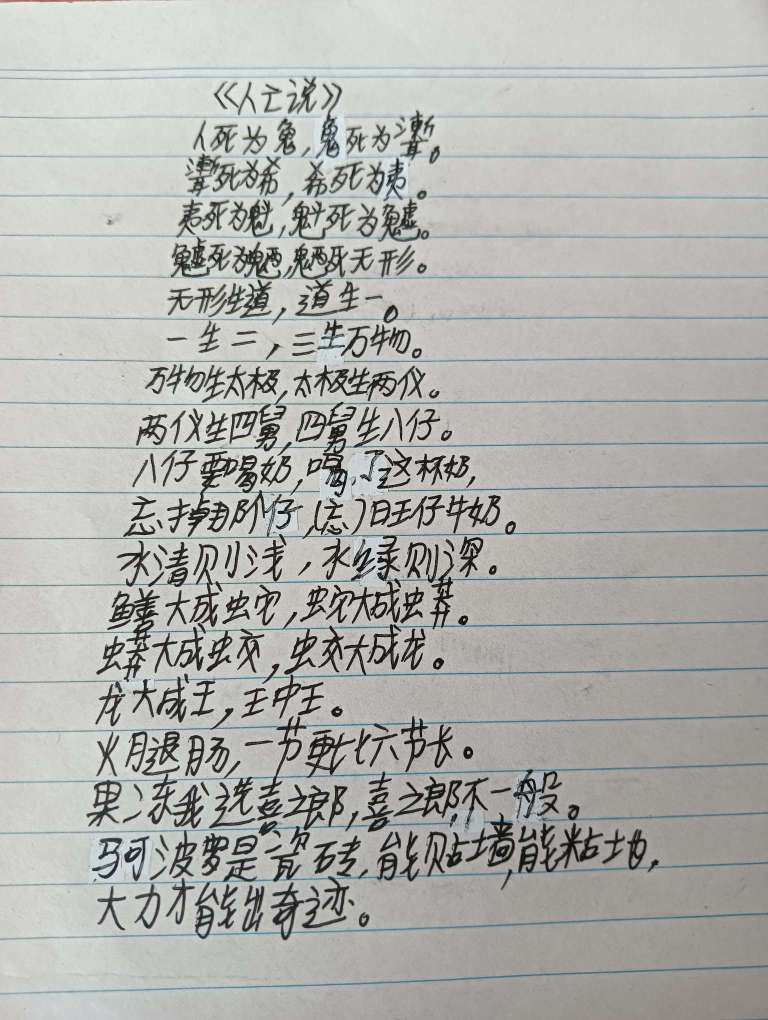 《人亡说》
人死为鬼,鬼死为魙。
魙死为希,希死为夷。
夷死为魁,魁死为魖。
魖死为魉,魉死无形。
无形生道,道生一。
一生二,三生万物。
万物生太极,太极生两仪。
两仪生四舅,四舅生八仔。
八仔要喝奶,喝了这杯奶,
忘掉那个仔,(忘)旺仔牛奶。
水清则浅,水绿则深。
鳝大成蛇,蛇大成蟒。
蟒大成蛟,蛟大成龙。
龙大成王,王中王。
火腿肠,一节更比六节长。
果冻我选喜之郎,喜之郎不一般。
马可波罗是瓷砖,能贴墙,能粘地,
大力才能出奇迹。